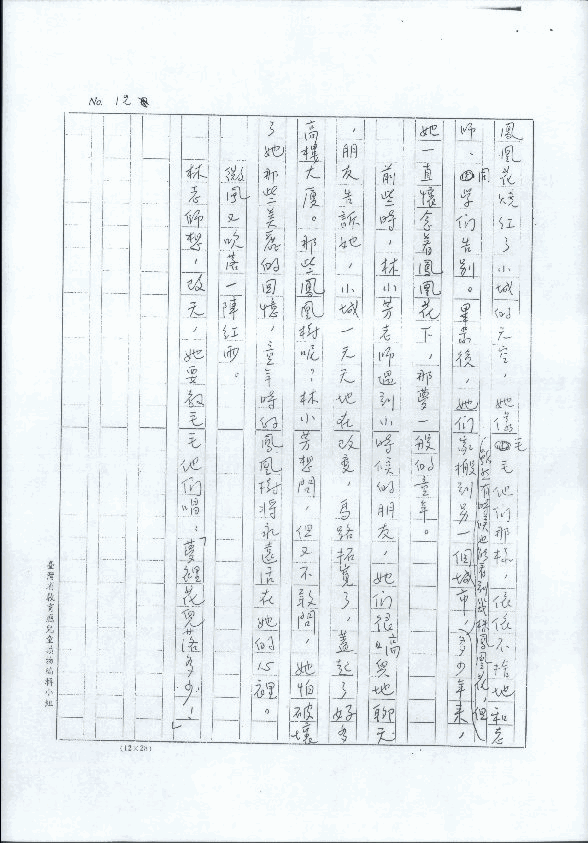 No. 12
鳳凰花燒紅了小城的天空，她像毛毛他们那樣，依依不捨地和老
師、同學们告别。畢業後，她们家搬到另一個城市，多少年来，
雖然有時候也能看到幾株鳳凰花，但
她一直懷念着鳳凰花下，那夢一般的童年。
前些時，林小芳老师遇到小時候的朋友，她们很高興地聊天
，朋友告訴她，小城一天天地在改變，馬路拓寬了，蓋起了好多
高樓大廈。那些鳳凰樹呢？林小芳想問，但又不敢問，她怕破壞
了她那些美麗的回憶，童年時的鳳凰樹將永遠活在她的心裡。
微風又吹落一陣紅雨。
林老師想，改天，她要教毛毛他们唱：「夢裡花兒落多少！」
臺灣省教育廳兒童讀物編輯小組
(12×28)